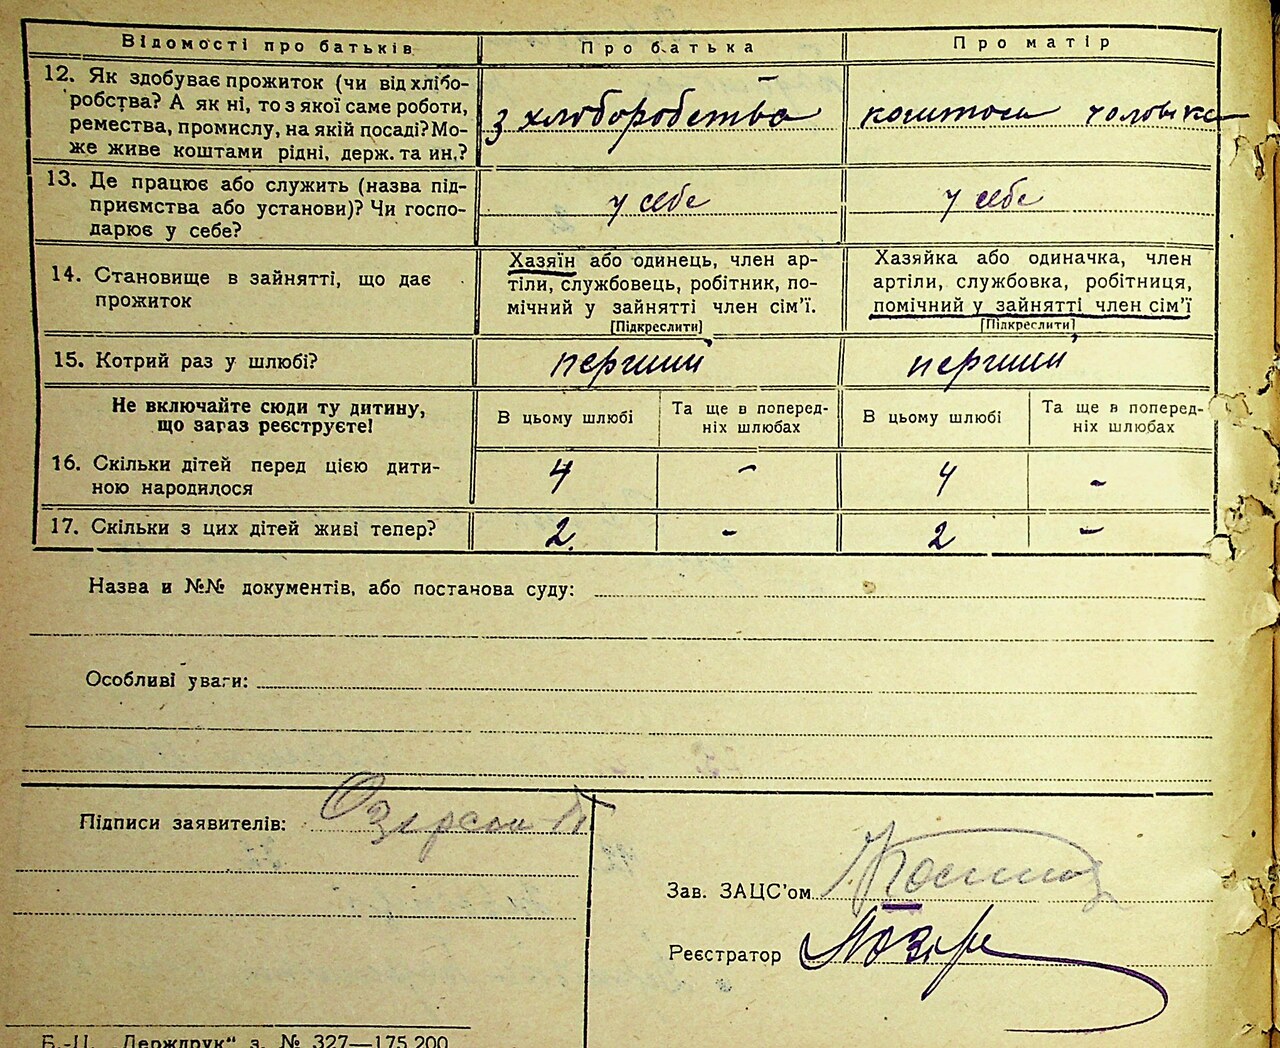 Відомості про батьків Про батька Про матір
12. Як здобуває прожиток (чи від хлібо-
робства? А як ні, то з якої саме роботи,
ремества, промислу, на якій посаді? Мо-
же живе коштами рідні, держ. та ин.?
з хліборобства коштом чоловіка
13. Де працює або служить (назва під-
приємства або установи)? Чи госпо-
дарює у себе?
у себе у себе
14. Становище в зайнятті, що дає
прожиток
Хазяїн або одинець, член ар-
тіли, службовець, робітник, по-
мічний у зайнятті член сім'ї.
[Підкреслити]
Хазяйка або одиначка, член
артіли, службовка, робітниця,
помічний у зайнятті член сім'ї
[Підкреслити]
15. Котрий раз у шлюбі? перший перший
Не включайте сюди ту дитину,
що зараз реєструєте!
В цьому шлюбі
Та ще в поперед-
ніх шлюбах
В цьому шлюбі
Та ще в поперед-
ніх шлюбах
16. Скільки дітей перед цією дити-
ною народилося
4 - 4 -
17. Скільки з цих дітей живі тепер? 2 - 2 -
Назва и №№ документів, або постанова суду:
Особливі уваги:
Підписи заявителів:
Зав. ЗАЦС'ом
Реєстратор
Б.-Ц. „Держдрук“ з. № 327—175.200